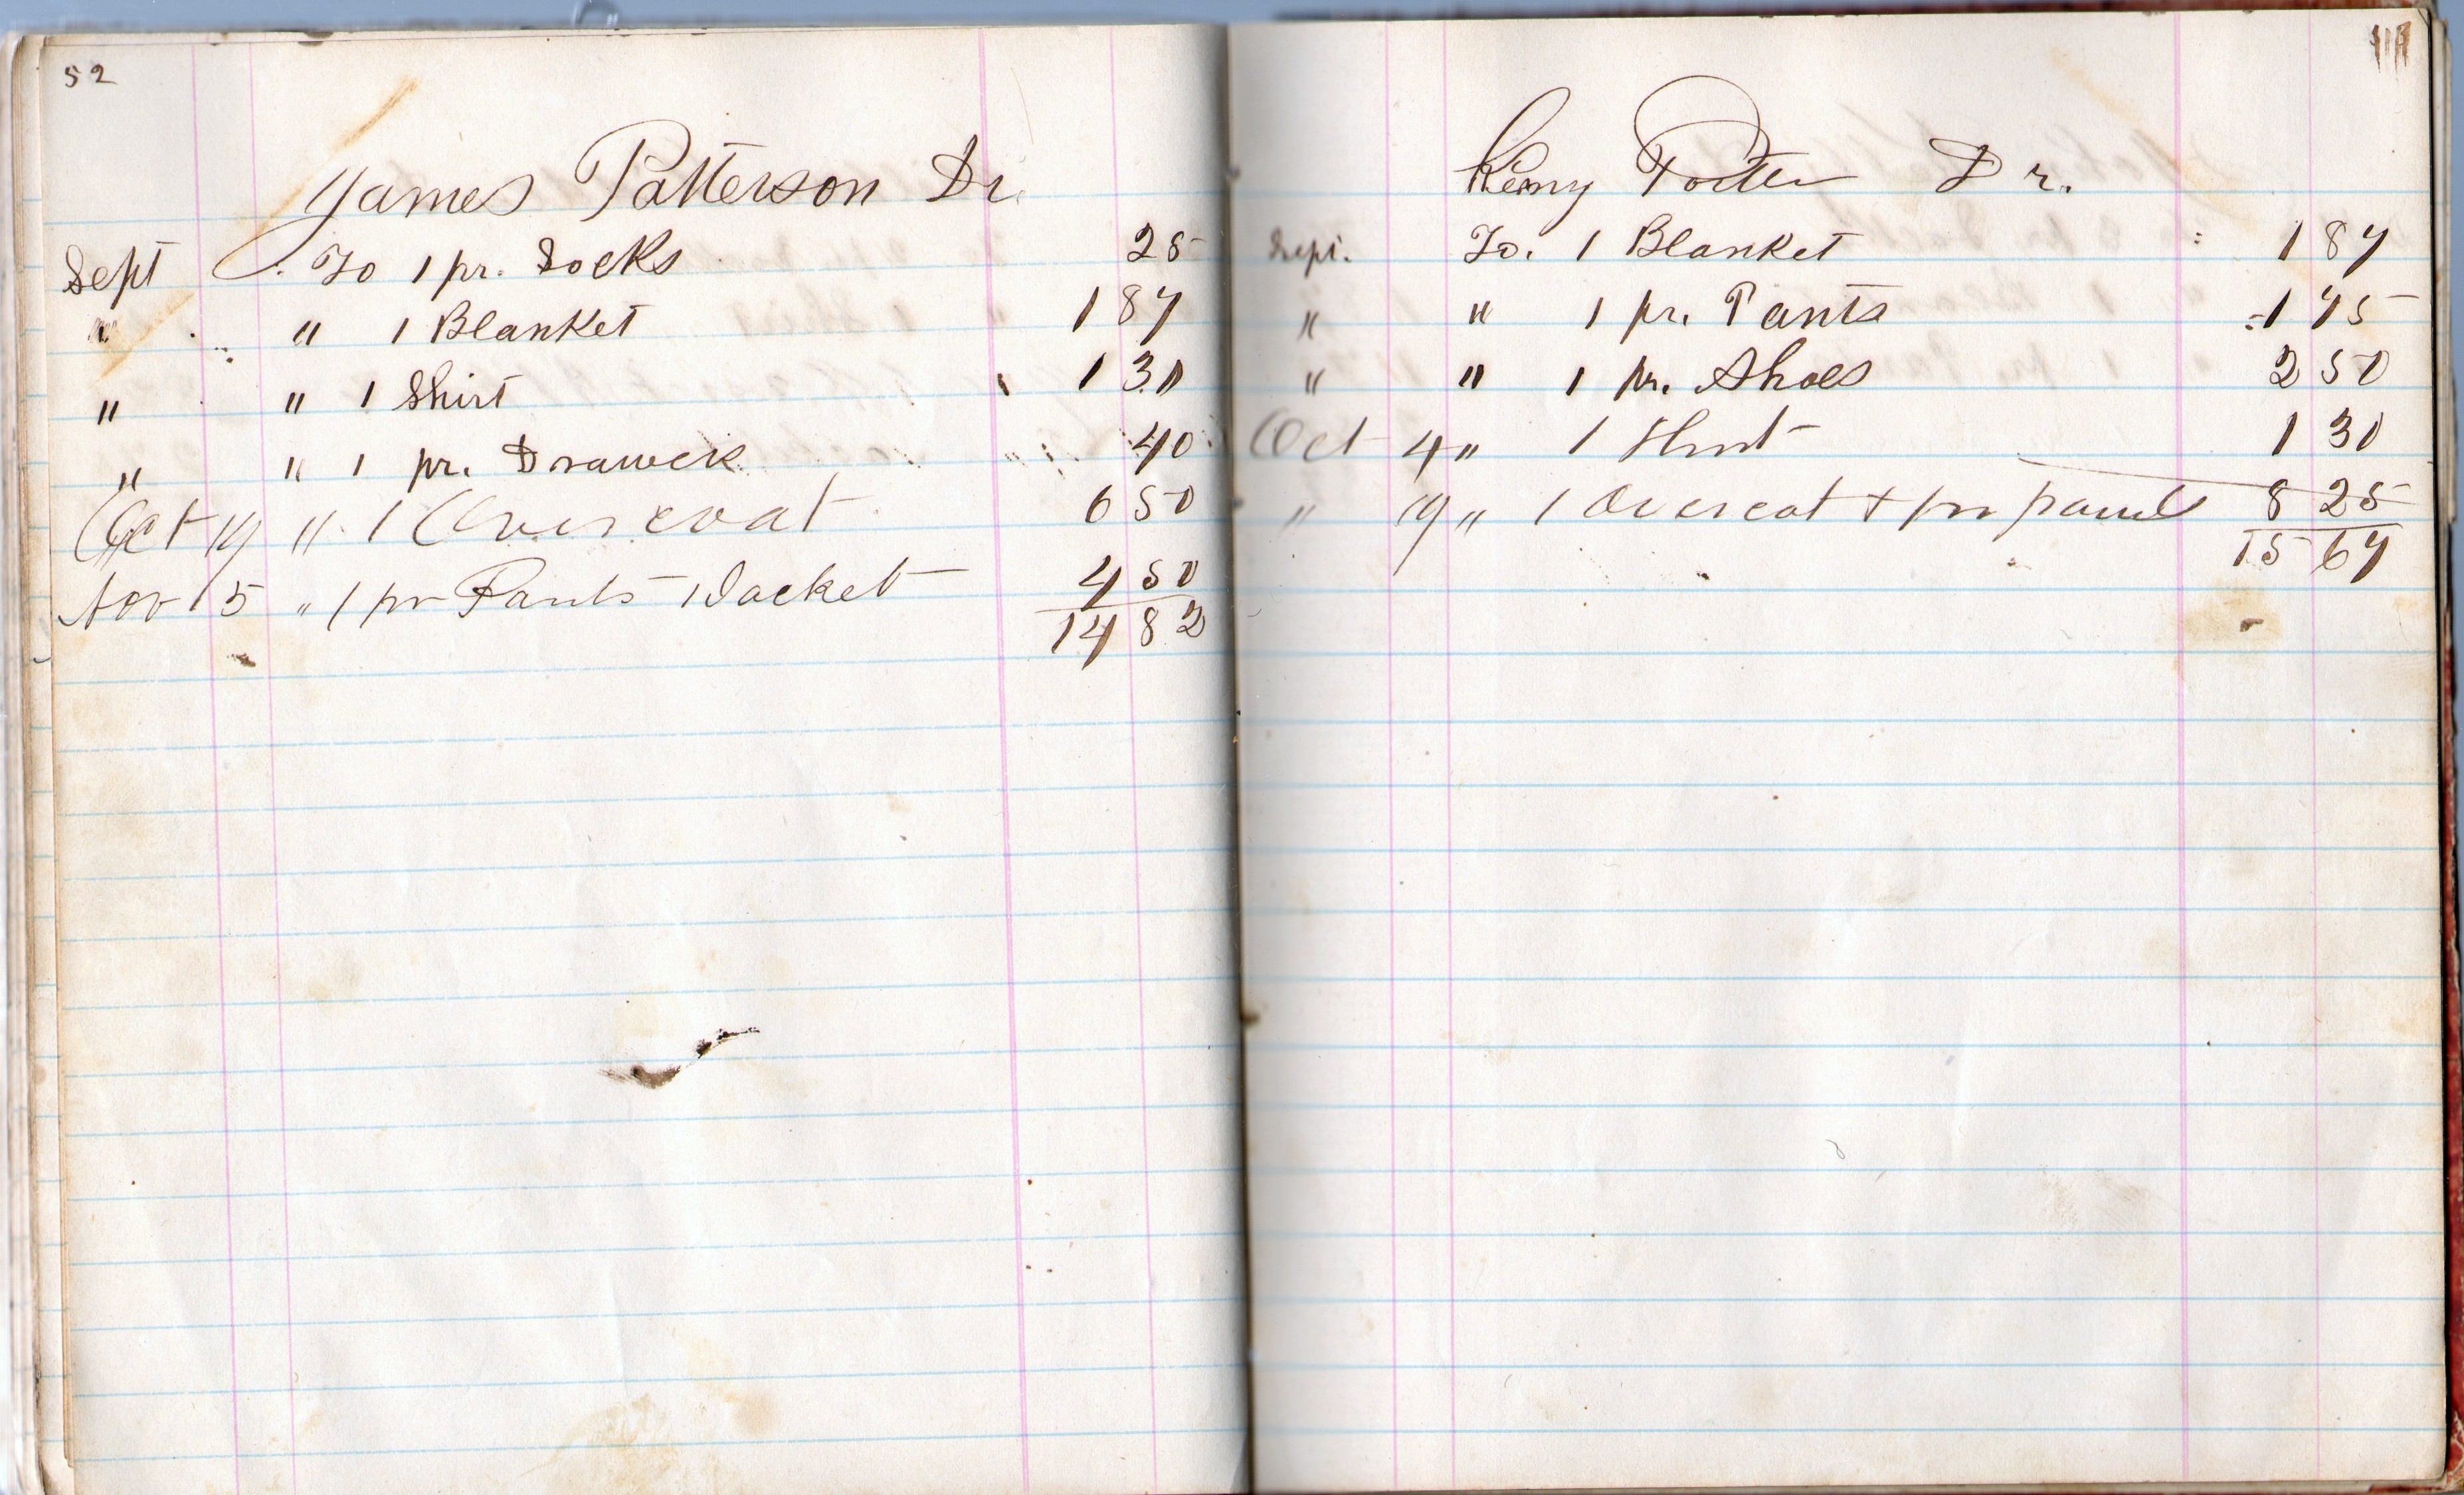 52
James Patterson Dr.
Sept To 1 pr. Socks 25
" " 1 Blanket 1 87
" " 1 Shirt 1 30
" " 1 pr. Drawers 40
Oct 19 " 1 Overcoat 6 50
Nov 15 " 1 pr Pants 1 Jacket 4 50
14 82
Porter Dr.
Sept. To. 1 Blanket 1 87
" " 1 pr. Pants 1 75
" " 1 pr. Shoes 2 50
Oct 4 " 1 Shirt 1 30
" 19 " 1 Overcoat + pr pants 8 25
15 67